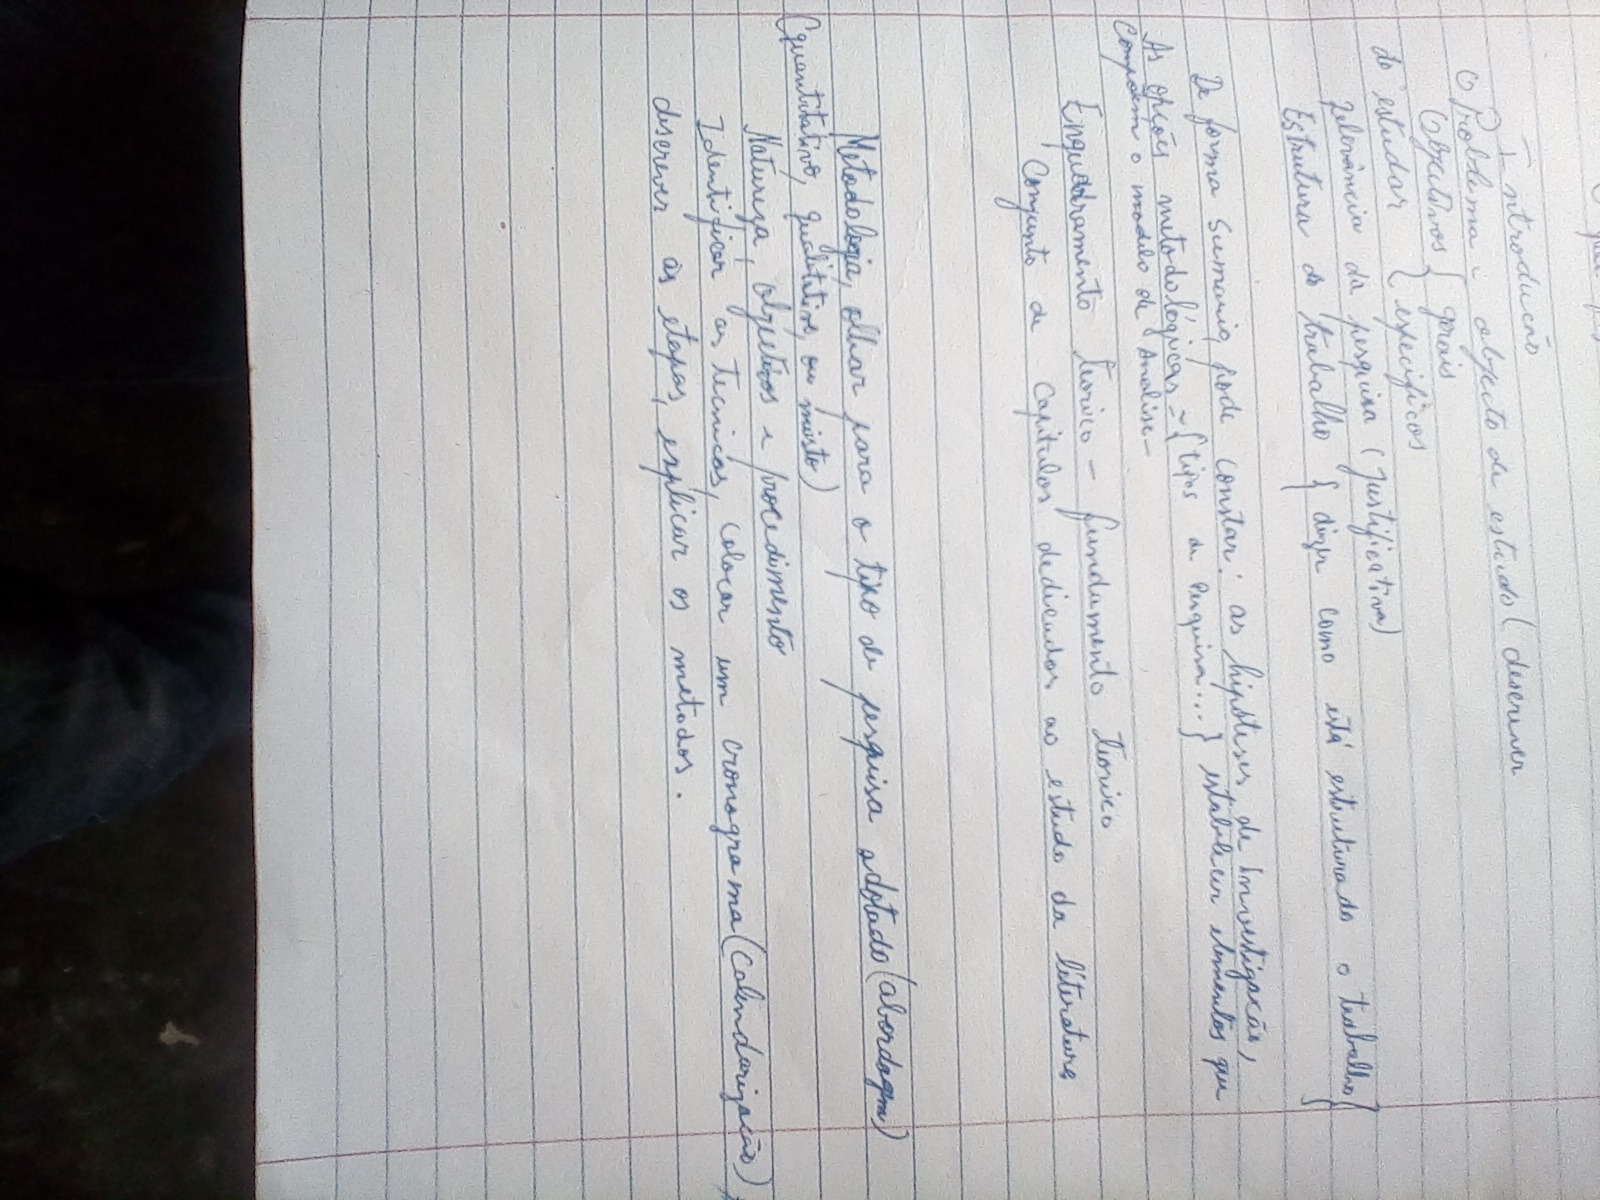 Introdução
O Problema e objecto de estudo (descrever
Objectivos { gerais
{ específicos
do estudar
Relevância da pesquisa (Justificativa)
Estrutura do trabalho { dizer como está estruturado o trabalho {
De forma sumaria, pode constar: as hipóteses de investigação,
As opções metodológicas - { tipos de pesquisa... } estabelecer elementos que
compõem o modelo de Análise-
Enquadramento teorico - fundamento teorico
Conjunto de capitulos dedicados ao estudo da literatura
Metodologia, olhar para o tipo de pesquisa adotado (abordagem)
(quantitativo, qualitativo, ou misto)
Natureza, objectivos e procedimento
Identificar as tecnicas, colocar um cronograma (Calendarização)
descrever as etapas, explicar os metodos.